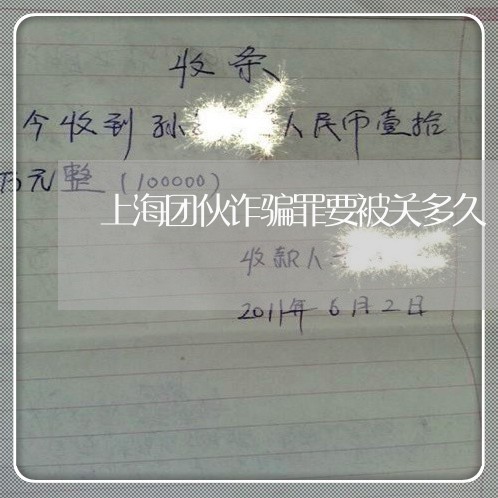 收条
今收到孙 人民币壹拾
万元整（100000）
上海团伙诈骗罪要被关多久
收款人
2011年6月2日